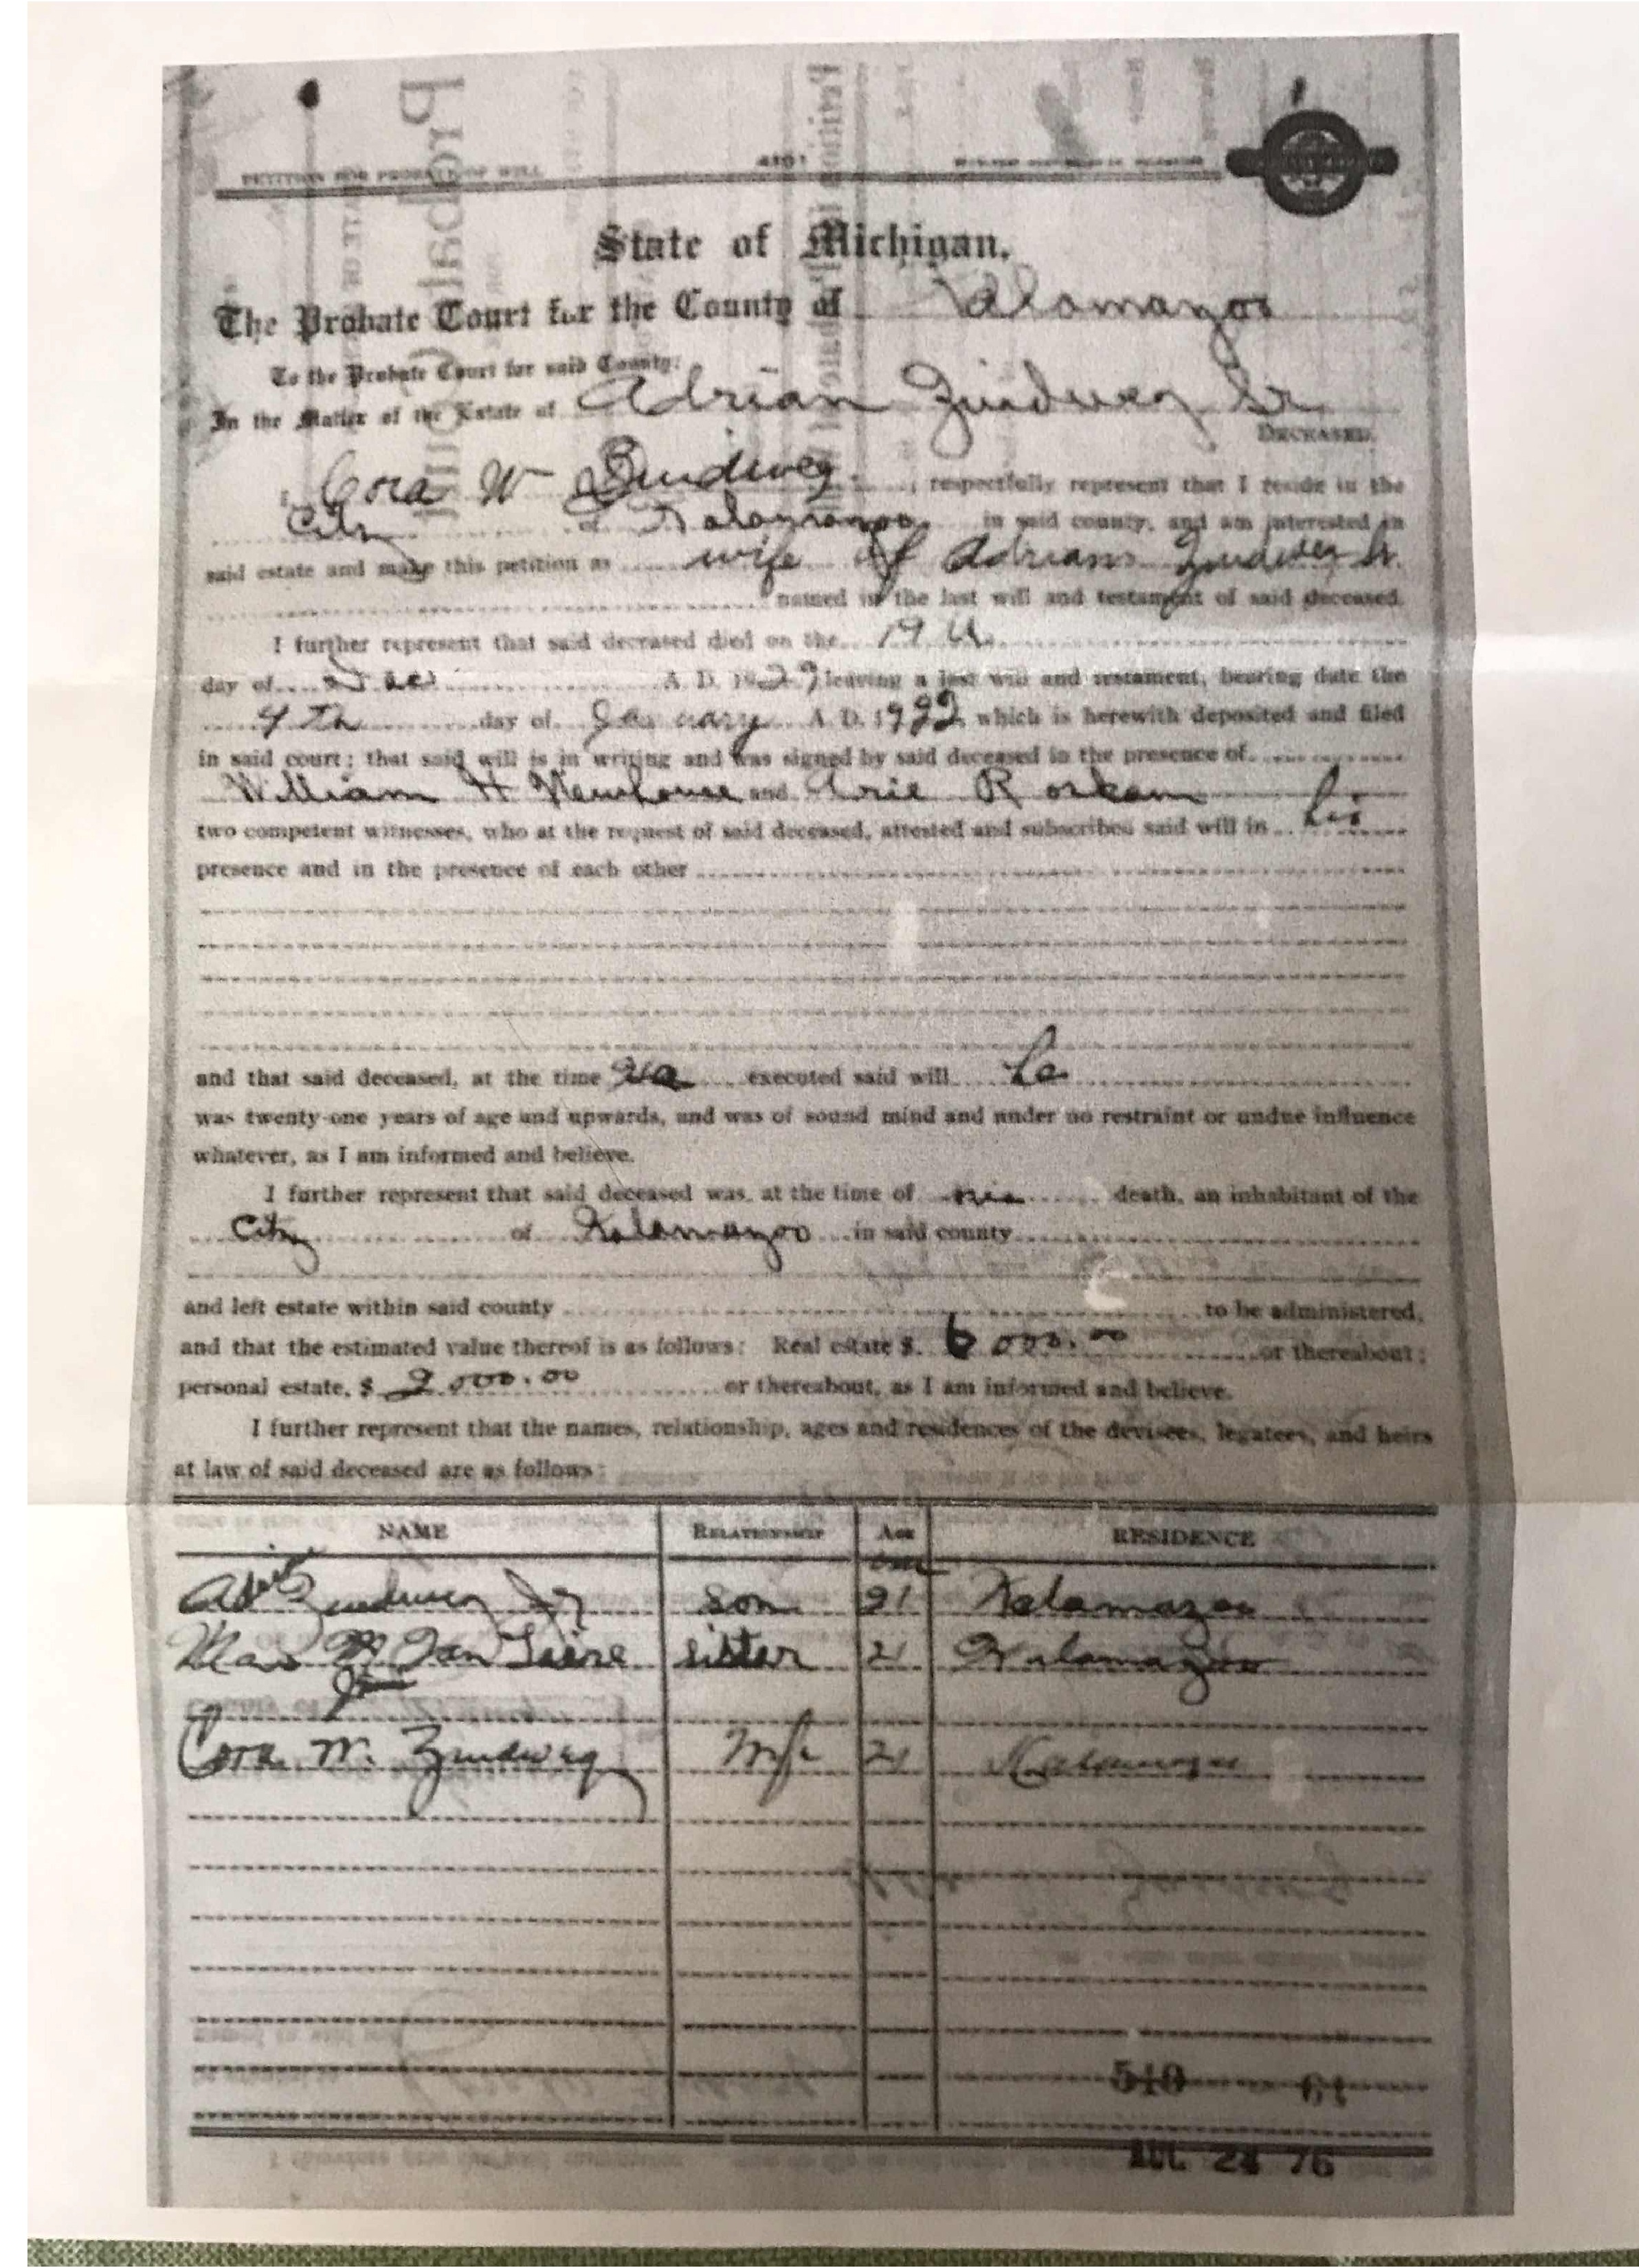 PETITION FOR PROBATE OF WILL
State of Michigan,
The Probate Court for the County of Kalamazoo
To the Probate Court for said County:
In the Matter of the Estate of Adrian Zuidweg Sr
DECEASED.
I, Cora W Zuidweg, respectfully represent that I reside in the
City of Kalamazoo in said county, and am interested in
said estate and make this petition as wife of Adrian Zuidweg Sr.
named in the last will and testament of said deceased.
I further represent that said deceased died on the 19th
day of Dec A. D. 1929, leaving a last will and testament, bearing date the
4th day of January A. D. 1922 which is herewith deposited and filed
in said court; that said will is in writing and was signed by said deceased in the presence of
William H Newhouse and Arie Roskam
two competent witnesses, who at the request of said deceased, attested and subscribed said will in his
presence and in the presence of each other
and that said deceased, at the time he executed said will he
was twenty-one years of age and upwards, and was of sound mind and under no restraint or undue influence
whatever, as I am informed and believe.
I further represent that said deceased was, at the time of his death, an inhabitant of the
City of Kalamazoo in said county
and left estate within said county to be administered,
and that the estimated value thereof is as follows: Real estate $ 6000.00 or thereabout;
personal estate, $ 2000.00 or thereabout, as I am informed and believe.
I further represent that the names, relationship, ages and residences of the devisees, legatees, and heirs
at law of said deceased are as follows:
NAME RELATIONSHIP AGE RESIDENCE
over
Zuidweg Jr son 21 Kalamazoo
sister 21 Kalamazoo
Cora W. Zuidweg Wife 21 Kalamazoo
510 61
24 76